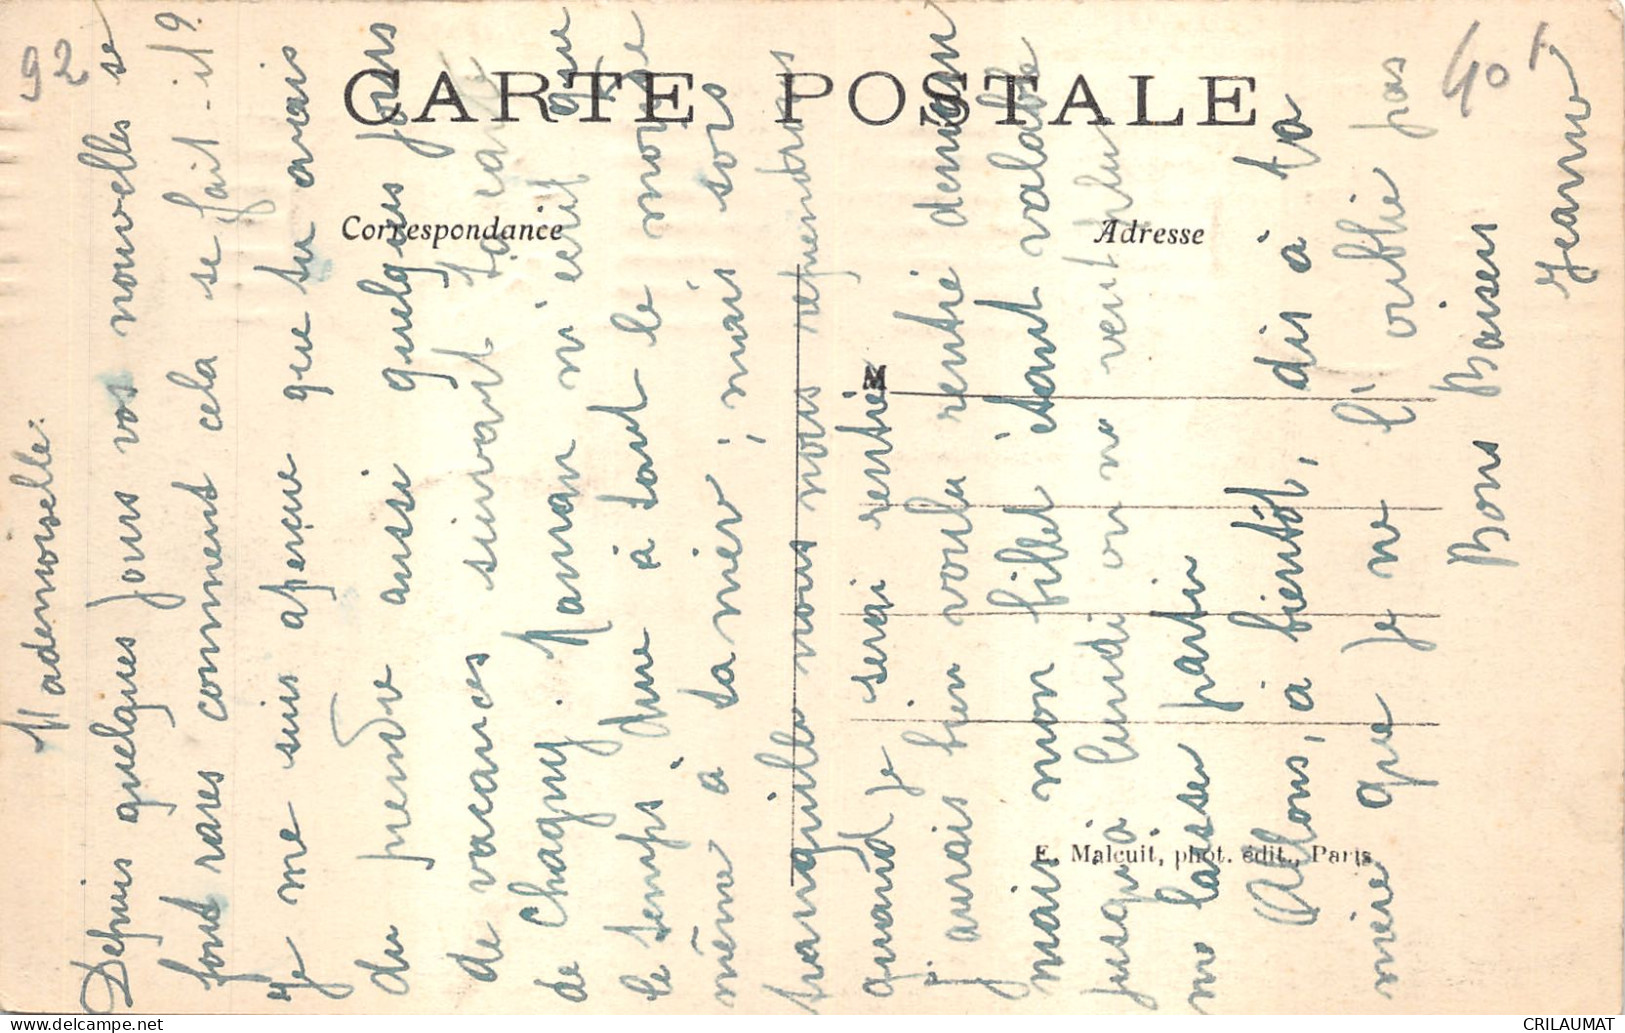 92
40 f
CARTE POSTALE
Correspondance
Adresse
M
E. Malcuit, phot. édit., Paris
Mademoiselle:
Depuis quelques jours vos nouvelles se
font rares comment cela se fait-il?
Je me suis aperçue que tu avais
du prendre aussi quelques jours
de vacances suivant ta carte
de Chagny. Maman m'écrit que
le temps dure à tout le monde
même à ta mèr; mais sois
tranquille nous nous reprendrons
quand je serai rentrée
j'aurais bien voulu rentré demain
mais mon billet étant valable
jusqu'à lundi on ne veut plus
me laisser partir
Allons, à bientôt, dis à ta
mère que je ne l'oublie pas
Bons Baisers
Jeanne
CRILAUMAT